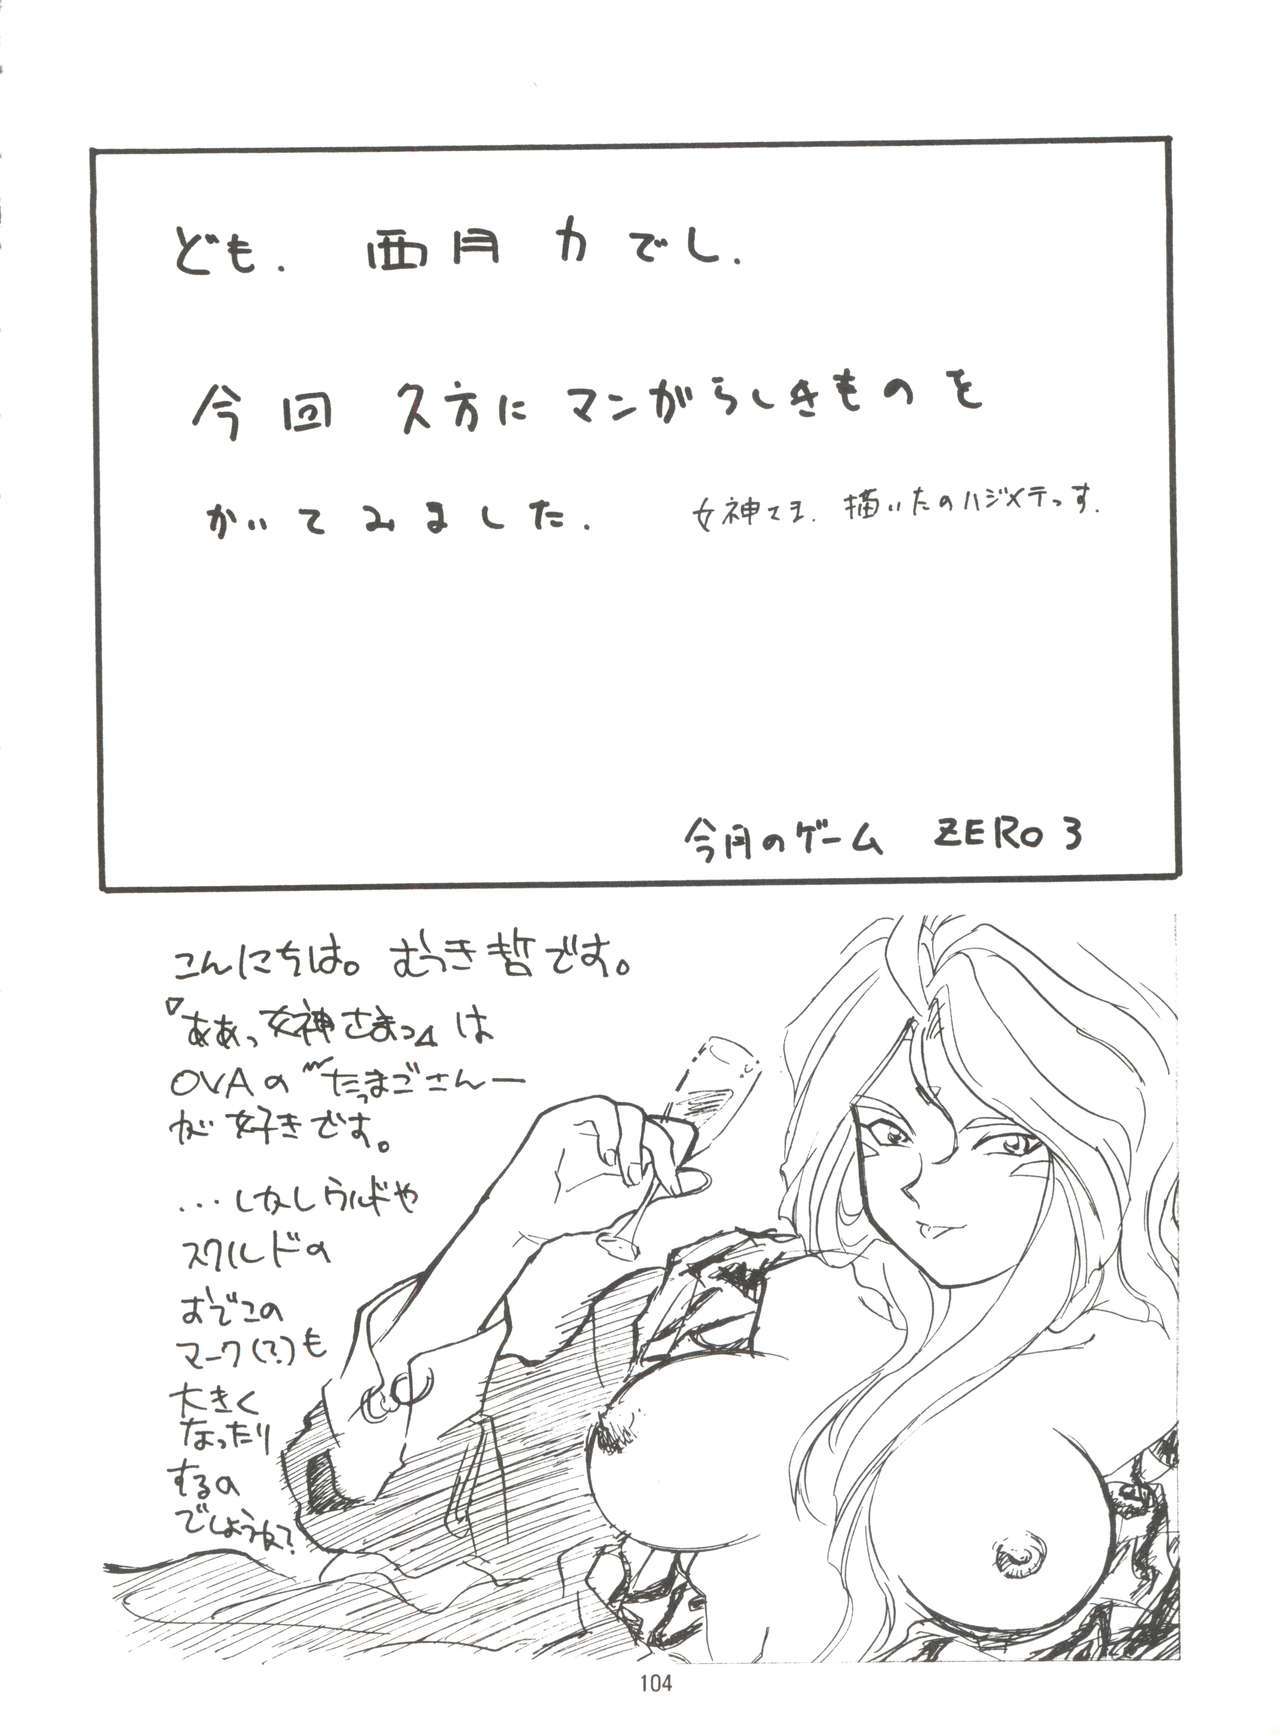 ども. 西月 力でし.
今回 久方に マンガらしきものを
かいてみました. 女神さま. 描いたのハジメテっす.
今月のゲーム ZERO 3
こんにちは。むつき哲です。
『ああっ女神さまっ』は
OVAの "たまごさんー
が好きです。
...しかしウルドや
スクルドの
おでこの
マーク(?)も
大きく
なったり
するの
でしょうね?
104